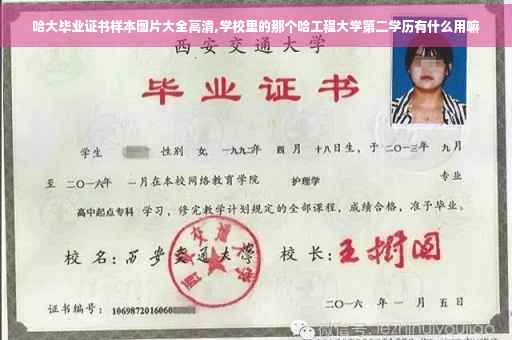 哈大毕业证书样本图片大全高清,学校里的那个哈工程大学第二学历有什么用嘛
西安交通大学
毕业证书
学生 性别 女, 一九九二年 四 月 十八日生, 于 二〇一三年 九月
至 二〇一六年 一月在本校网络教育学院 护理学 专业
高中起点专科 学习, 修完教学计划规定的全部课程, 成绩合格, 准予毕业。
校 名: 西安交通大学 校 长: 王树国
西安交通大学
证书编号: 1069872016060
二〇一六 年 一 月 五 日
微信号: jezhihuiyoujiao